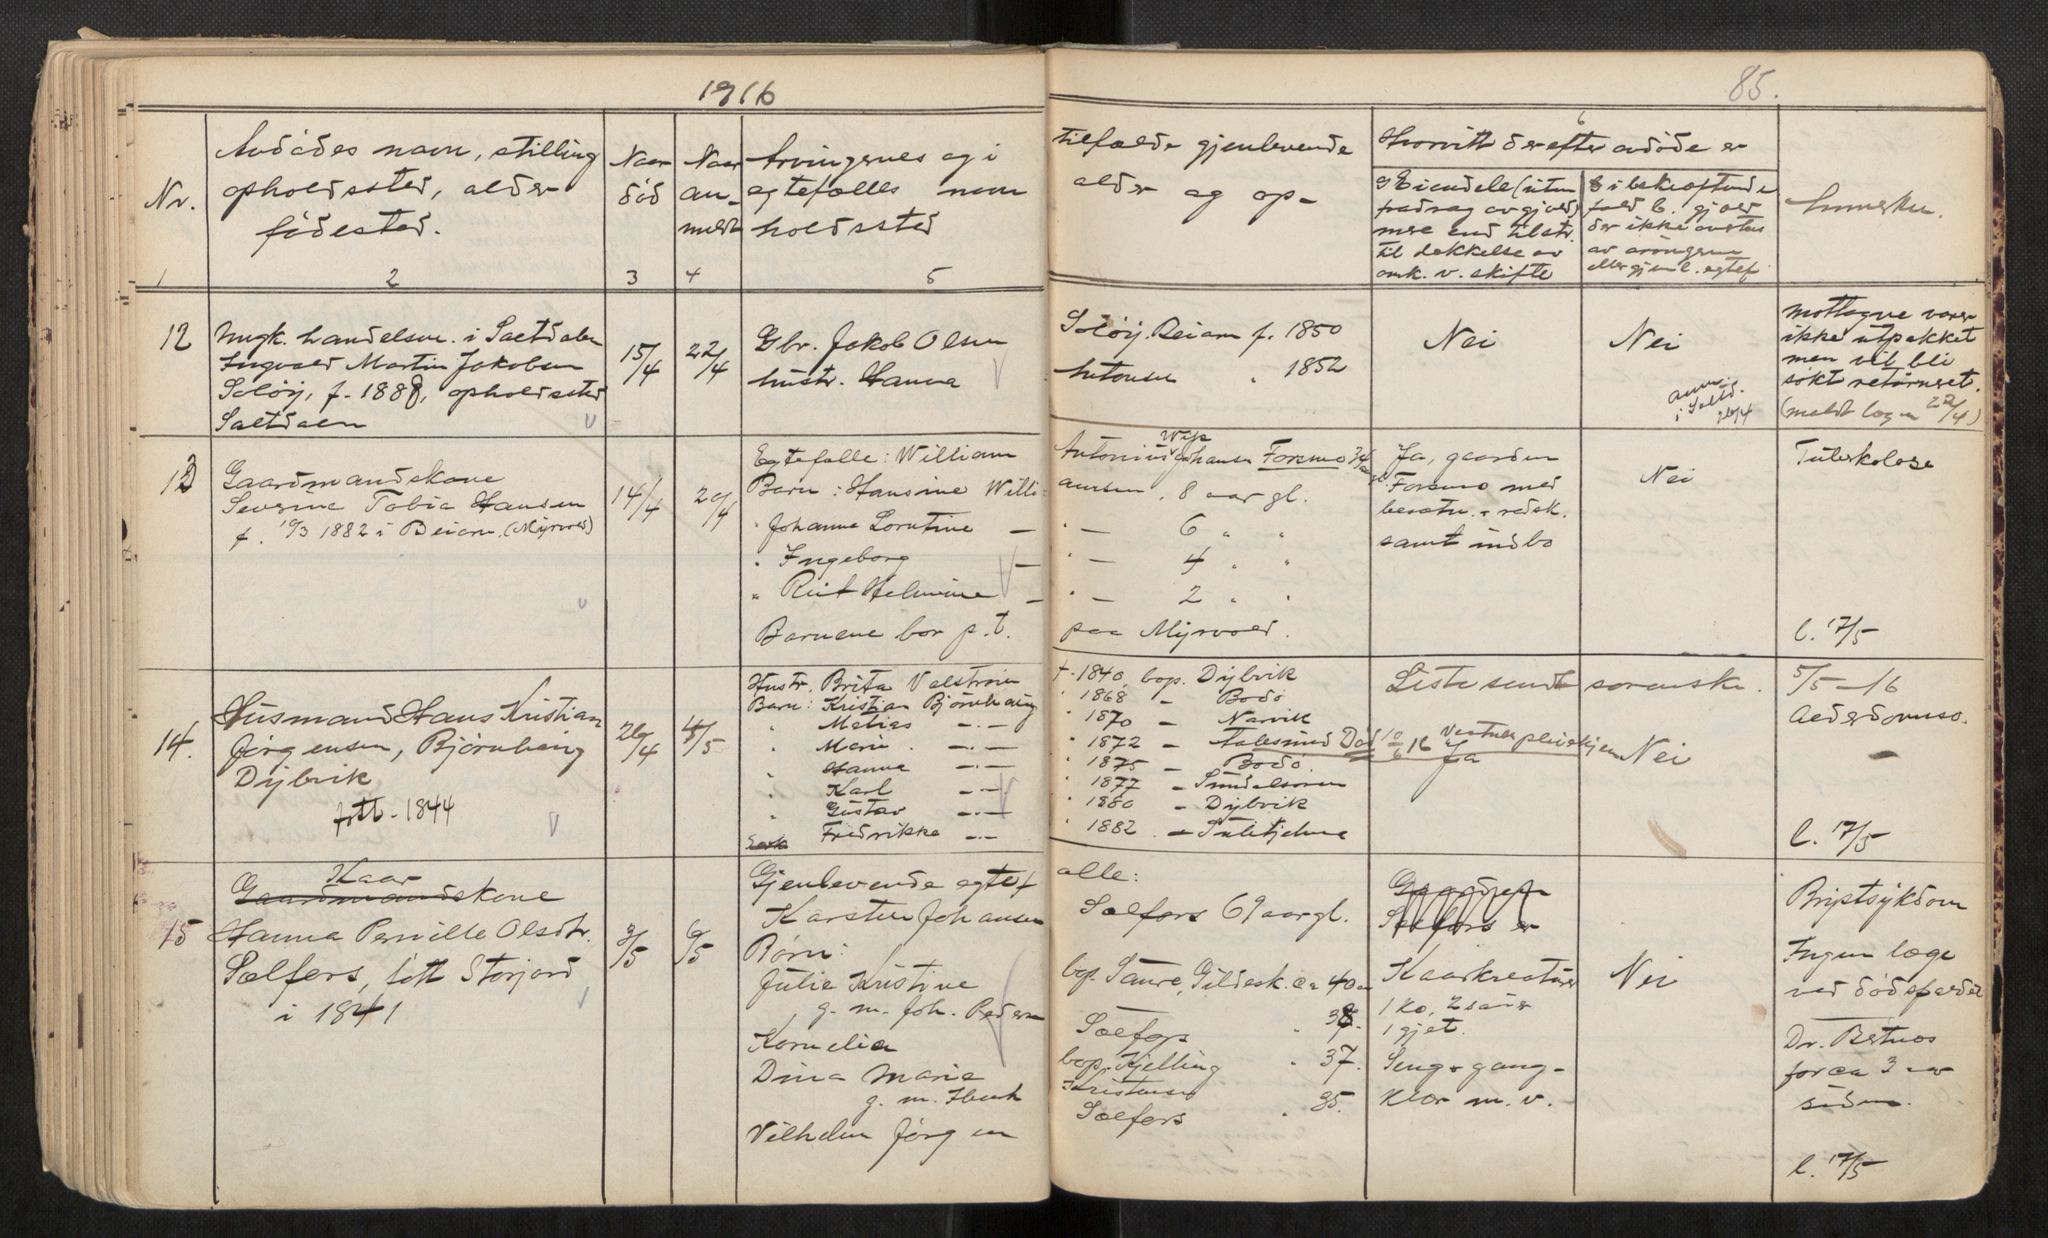 1916
85.
Nr.
Avdødes navn, stilling
opholdssted, alder
fødested.
Naar
død
Naar
an-
meldt
Arvingernes og i
egtefælles navn
holdssted
tilfælde gjenlevende
alder og op-
6
Hvorvidt der efter avdøde er
a Eiendele (uten
fradrag av gjæld)
mere end tilstr.
til dækkelse av
omk. v. skifte
b i bekræftende
fald b. gjæld
der ikke overtas
av arvingerne
eller gjenl. egtef.
Anmerkn.
1
2
3
4
5
12
Ungk. handelsm. i Saltdalen
Ingvald Martin Jakobsen
Soløy, f. 1888, opholdssted
Saltdalen
15/4
22/4
Gbr. Jakob Olsen
hustr. Hanna
Soløy, Beiarn f. 1850
Antonsen " 1852
Nei
Nei
anm.
i Saltd.
26/4
mottagne varer
ikke utpakket
men vil bli
søkt returneret.
(meldt av lægen 22/4)
13
Gaardmandskone
Severine Tobia Hansen
f. 10/3 1882 i Beiarn (Myrvold)
14/4
20/4
Egtefælle: William
Barn: Hansine Willi-
" Johanna Lorntine —
" Ingeborg —
" Rut Helmine —
Barnene bor p.t.
Antonius Johansen Forsmo 34
aumsen, 8 aar gl.
" — 6 " "
" — 4 " "
" — 2 " "
paa Myrvold.
Ja, gaarden
Forsmo med
besætn. + redsk.
samt indbo
Nei
Tuberkolose
l. 17/5
14.
Husmand Hans Kristian
Jørgensen, Bjørnhaug
Dybvik
født - 1844
26/4
4/5
Hustr. Brita Valstrøm
Barn: Kristian Bjørnhaug
" Matias — " —
" Marie — " —
" Hanna — " —
" Karl — " —
" Gustav — " —
Fredrikke — " —
f. 1840 bop. Dybvik
" 1868 — Bodø
" 1870 — Narvik
" 1872 — Død 10/6 16
" 1875 — Bodø
" 1877 —
" 1880 — Dybvik
" 1882 — Sulitjelma
Liste sendt sorensk.
Ja
Nei
5/5 - 16
Alderdomss.
—
l. 17/5
15
Kaar
Gaardmandskone
Hanna Pernille Olsdtr.
Sælfors, født Storjord
i 1841
3/5
6/5
Gjenlevende egtef
Karsten Johansen
Børn:
Julie Kristine
g. m. Joh. Pedersen
Kornelia
Dina Marie
g. m. Henk
Vilhelm Jørgen
alle:
Sælfors 69 aar gl.
bop. Saura, Gildesk. ca 40 a
Sælfors " 38.
bop. Kjelling " 37.
Kristensen
Sælfors " 35.
Gaarden
Sælfors er
Kaarkreaturer
1 ko, 2 sauer
1 gjet.
Seng + gang-
klær m. v.
Nei
Brystsykdom
Ingen læge
ved dødsfaldet
Dr. Betuos
for ca 3 aar
siden.
l. 17/5